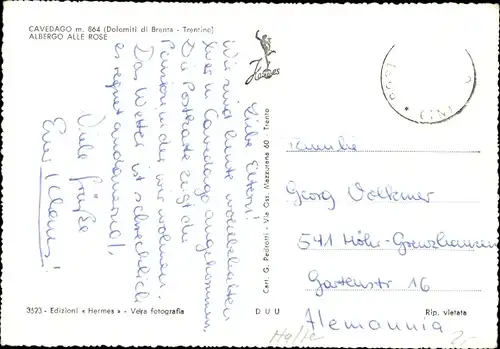 CAVEDAGO m. 864 (Dolomiti di Brenta - Trentino)
ALBERGO ALLE ROSE
Hermes
Liebe Eltern!
Wir sind heute wohlbehalten
hier in Cavedago angekommen.
Die Postkarte zeigt die
Pension in der wir wohnen.
Das Wetter ist schrecklich
es regnet andauernd!
Viele Grüße
Euer Klaus!
Cart. G. Pedrotti - Via Gas. Mazzurana 60 - Trento
(TN)
Familie
Georg Volkmer
541 Höhr-Grenzhausen
Gartenstr 16
Alemannia
3523 - Edizioni « Hermes » - Vera fotografia
D U U
Rip. vietata